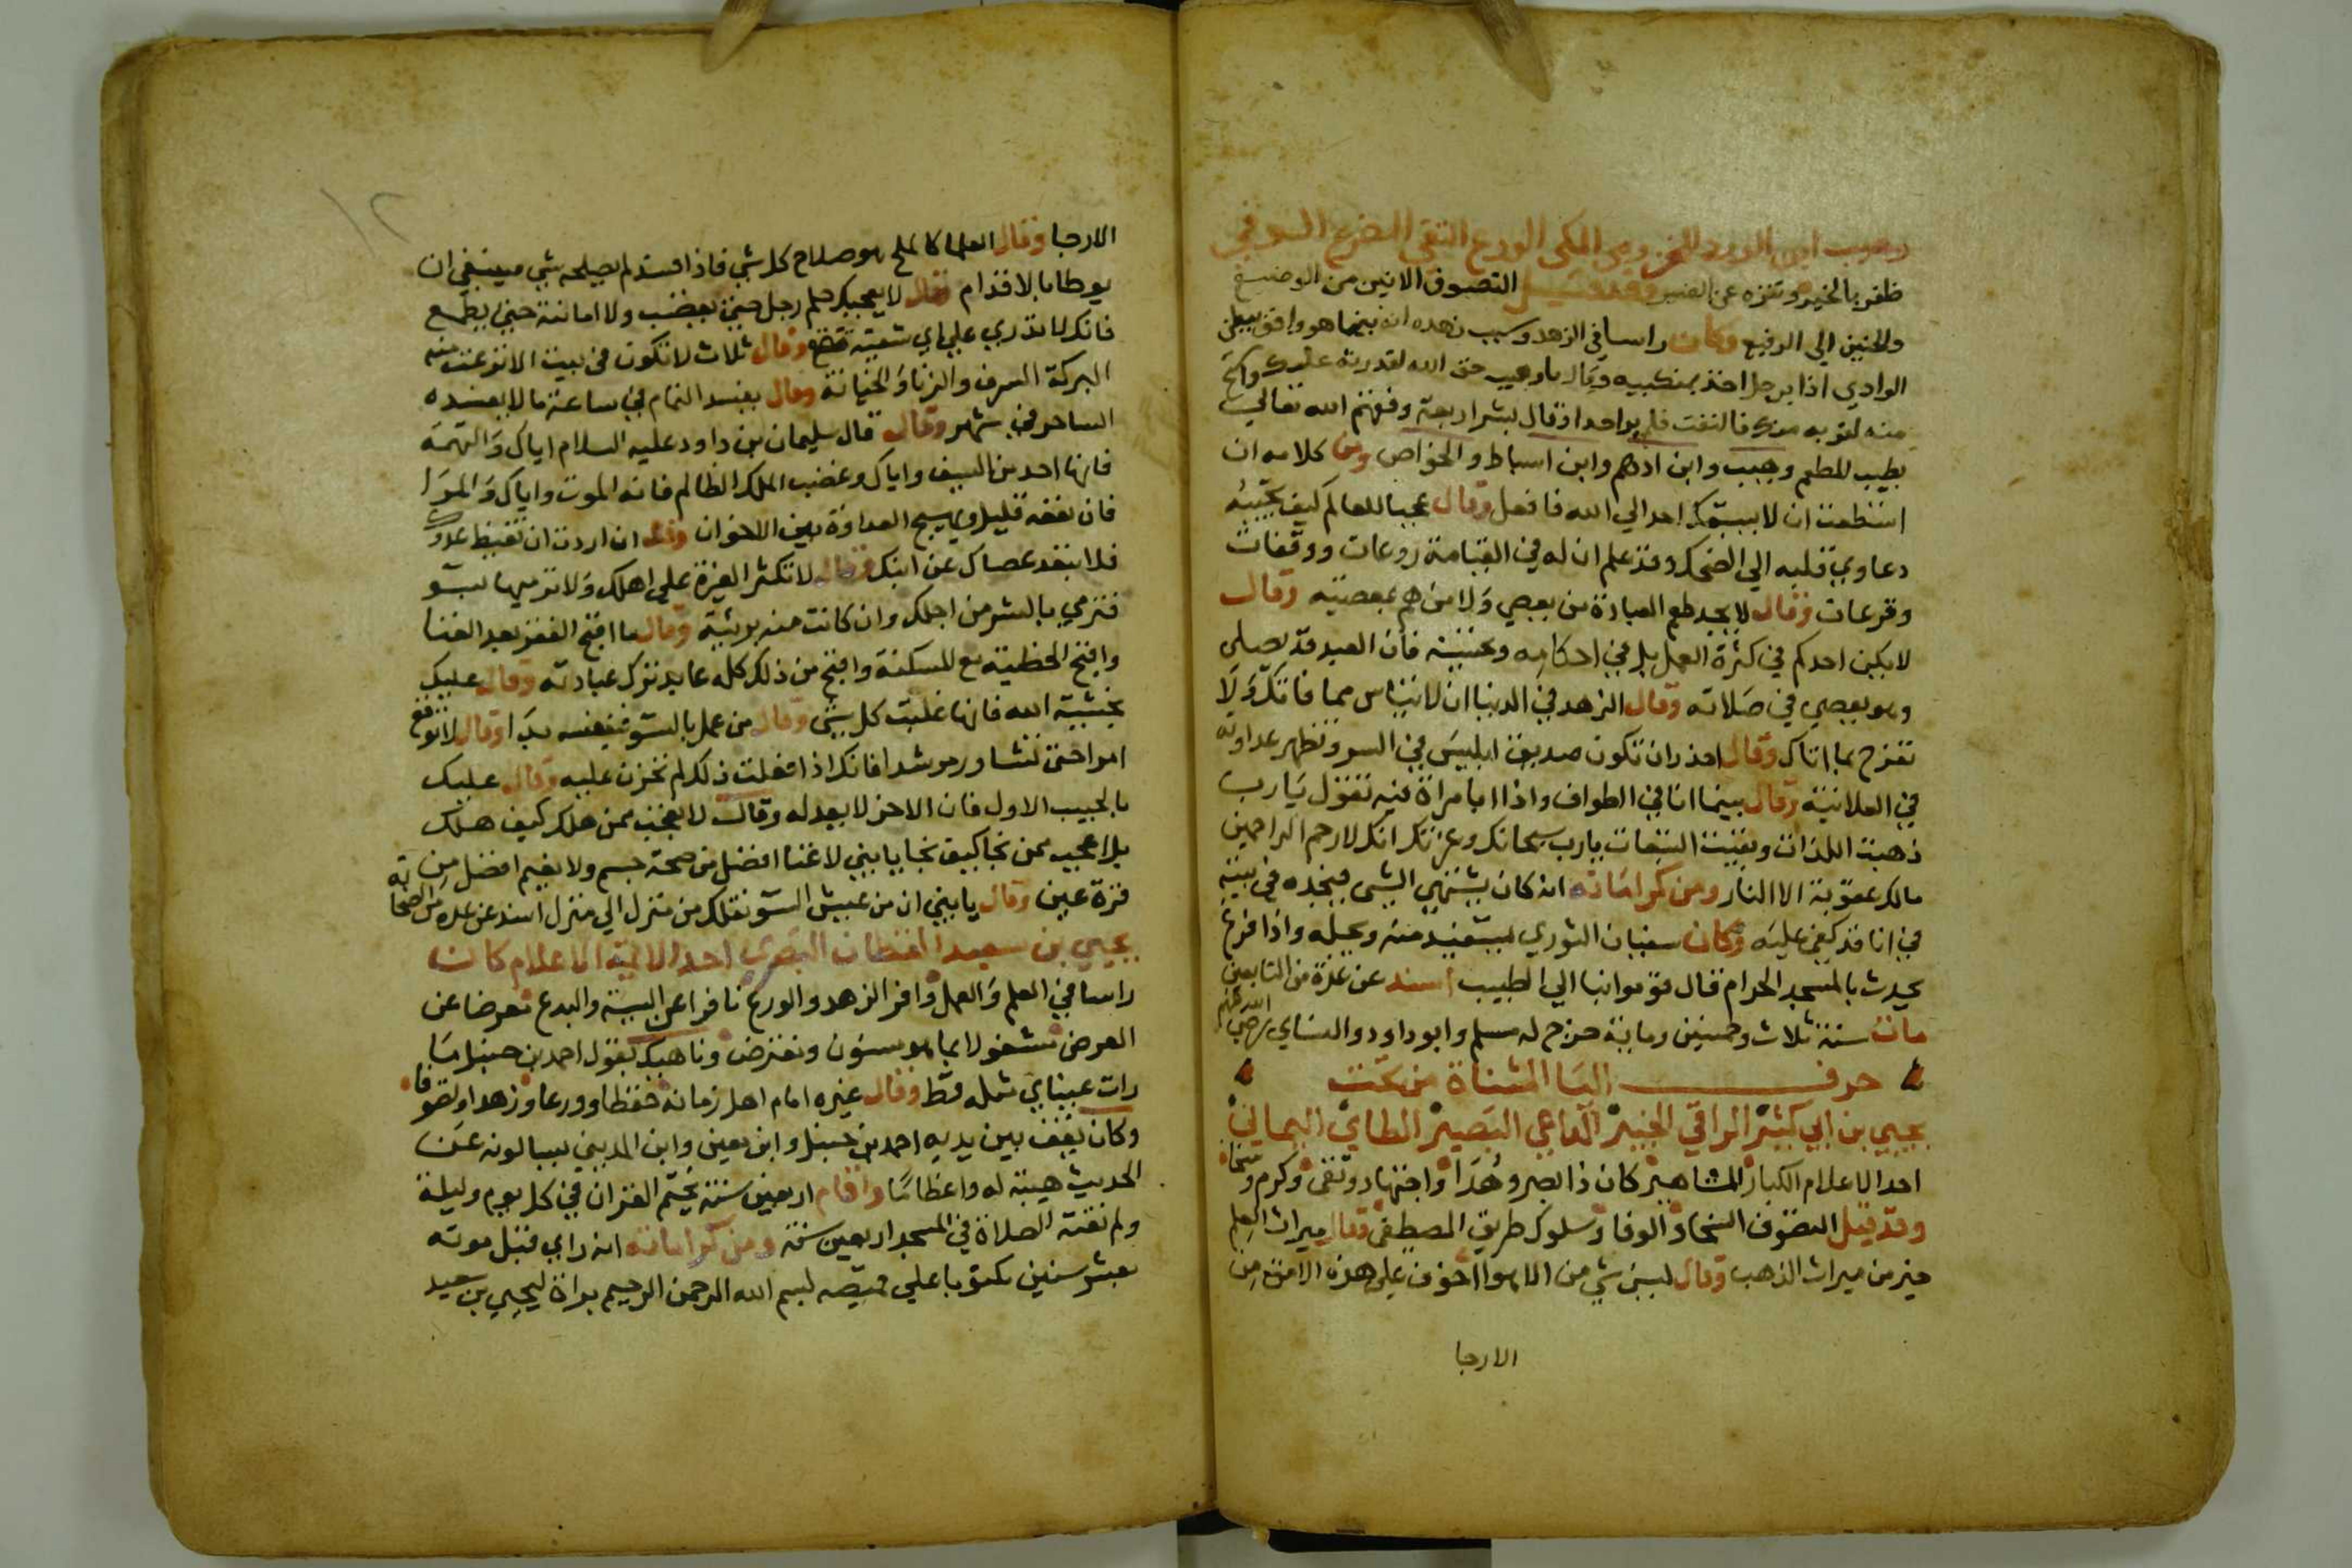 وهيب ابن الورد المخزومي المكي الورع التقي الضرع السوفي
ظفر بالخير وتنزه عن الضير وقد قيل التصوف الانين من الوضيع
والحنين الي الرفيع وكان راسا في الزهد وسبب زهده انه بينما هو واقف ببطن
الوادي اذا برجل اخذ بمنكبيه وقال ياوهيب خف الله لقدرته عليك واستح
منه لقربه منك فالتفت فلم يراحدا وقال بشر اربعة رفعهم الله تعالي
بطيب المطعم وهيب وابن ادهم وابن اسباط والخواص ومن كلامه ان
استطعت ان لا يسبقك احد الي الله فافعل وقال عجبا للعالم كيف تجيبه
دعاوي قلبه الي الضحك وقد علم ان له في القيامة روعات ووقفات
وفزعات وقال لا يجد طعم العبادة من يعصي ولا من هم بمعصية وقال
لا يكن احدكم في كثرة العمل بل في احكامه وتحسينه فان العبد قد يصلي
وهو يعصي في صلاته وقال الزهد في الدنيا ان لا تياس مما فاتك ولا
تفرح بما اتاك وقال احذر ان تكون صديق ابليس في السر وتظهر عداوته
في العلانية وقال بينما انا في الطواف واذا انا بامراة فيه تقول يارب
ذهبت اللذات وبقيت التبعات يارب سبحانك وعزتك انك لارحم الراحمين
مالك عقوبة الا النار ومن كراماته انه كان يشتهي الشي فيجده في بيته
في انا قد كفي عليه وكان سفيان الثوري يستفيد منه ويجله واذا فرغ
يحدث بالمسجد الحرام قال قوموا بنا الي الطبيب اسند عن عدة من التابعين
مات سنة ثلاث وخمسين وماية خرج له مسلم وابو داود والنساي رضي الله عنهم
حرف اليا المثناة من تحت
يحيي بن ابي كثير الراقي الخبير الداعي البصير الطاي اليماني
احد الاعلام الكبار المشاهير كان ذا بصر وهدا واجتهاد وتقي وكرم وسخا
وقد قيل التصوف السخا والوفا وسلوك طريق المصطفي وقال ميراث العلم
خير من ميراث الذهب وقال ليس شي من الاهوا اخوف علي هذه الامة من
الارجا
١٢
الارجا وقال العلما كالملح هو صلاح كل شي فاذا فسد لم يصلحه شي فينبغي ان
يوطا بالاقدام وقال لا يعجبك حلم رجل حتي يغضب ولا امانته حتي يطمع
فانك لا تدري علي اي شقيه يقع وقال ثلاث لا تكون في بيت الا نزعت منه
البركة السرف والزنا والخيانة وقال يفسد النمام في ساعة ما لا يفسده
الساحر في شهر وقال قال سليمان بن داود عليه السلام اياك والنميمة
فانها احد من السيف واياك وغضب الملك الظالم فانه الموت واياك والمرا
فان نفعه قليل ويهيج العداوة بين الاخوان وقال ان اردت ان تغيظ عدوك
فلا تبعد عصاك عن ابنك وقال لا تكثر الغيرة علي اهلك ولا ترميها بسو
فترمي بالشر من اجلك وان كانت منه بريئة وقال ما اقبح الفقر بعد الغنا
واقبح الخطية مع المسكنة واقبح من ذلك كله عابد ترك عبادته وقال عليك
بخشية الله فانها غلبت كل شي وقال من عمل بالسو فنفسه بدا وقال لا توقع
امرا حتي تشاور مرشدا فانك اذا فعلت ذلك لم تحزن عليه وقال عليك
بالحبيب الاول فان الاخر لا يعدله وقال لا تعجب ممن هلك كيف هلك
بل اعجب ممن نجا كيف نجا يابني لا غنا افضل من صحة جسم ولا نعيم افضل من
قرة عين وقال يابني ان من عيش السو نقلك من منزل الي منزل اسند عن عدة من الصحابة
يحيي بن سعيد القطان البصري احد الائمة الاعلام كان
راسا في العلم والعمل وافر الزهد والورع نافرا عن السية والبدع معرضا عن
العرض مشغولا بما هو مسنون ومفترض وناهيك بقول احمد بن حنبل ما
رات عيناي مثله قط وقال غيره امام اهل زمانه حفظا وورعا وزهدا وتصوفا
وكان يقف بين يديه احمد بن حنبل وابن معين وابن المديني يسالونه عن
الحديث هيبة له واعظاما واقام اربعين سنة يختم القران في كل يوم وليلة
ولم تفته الصلاة في المسجد اربعين سنة ومن كراماته انه راي قبل موته
بعشر سنين مكتوبا علي قميصه بسم الله الرحمن الرحيم براة ليحيي بن سعيد